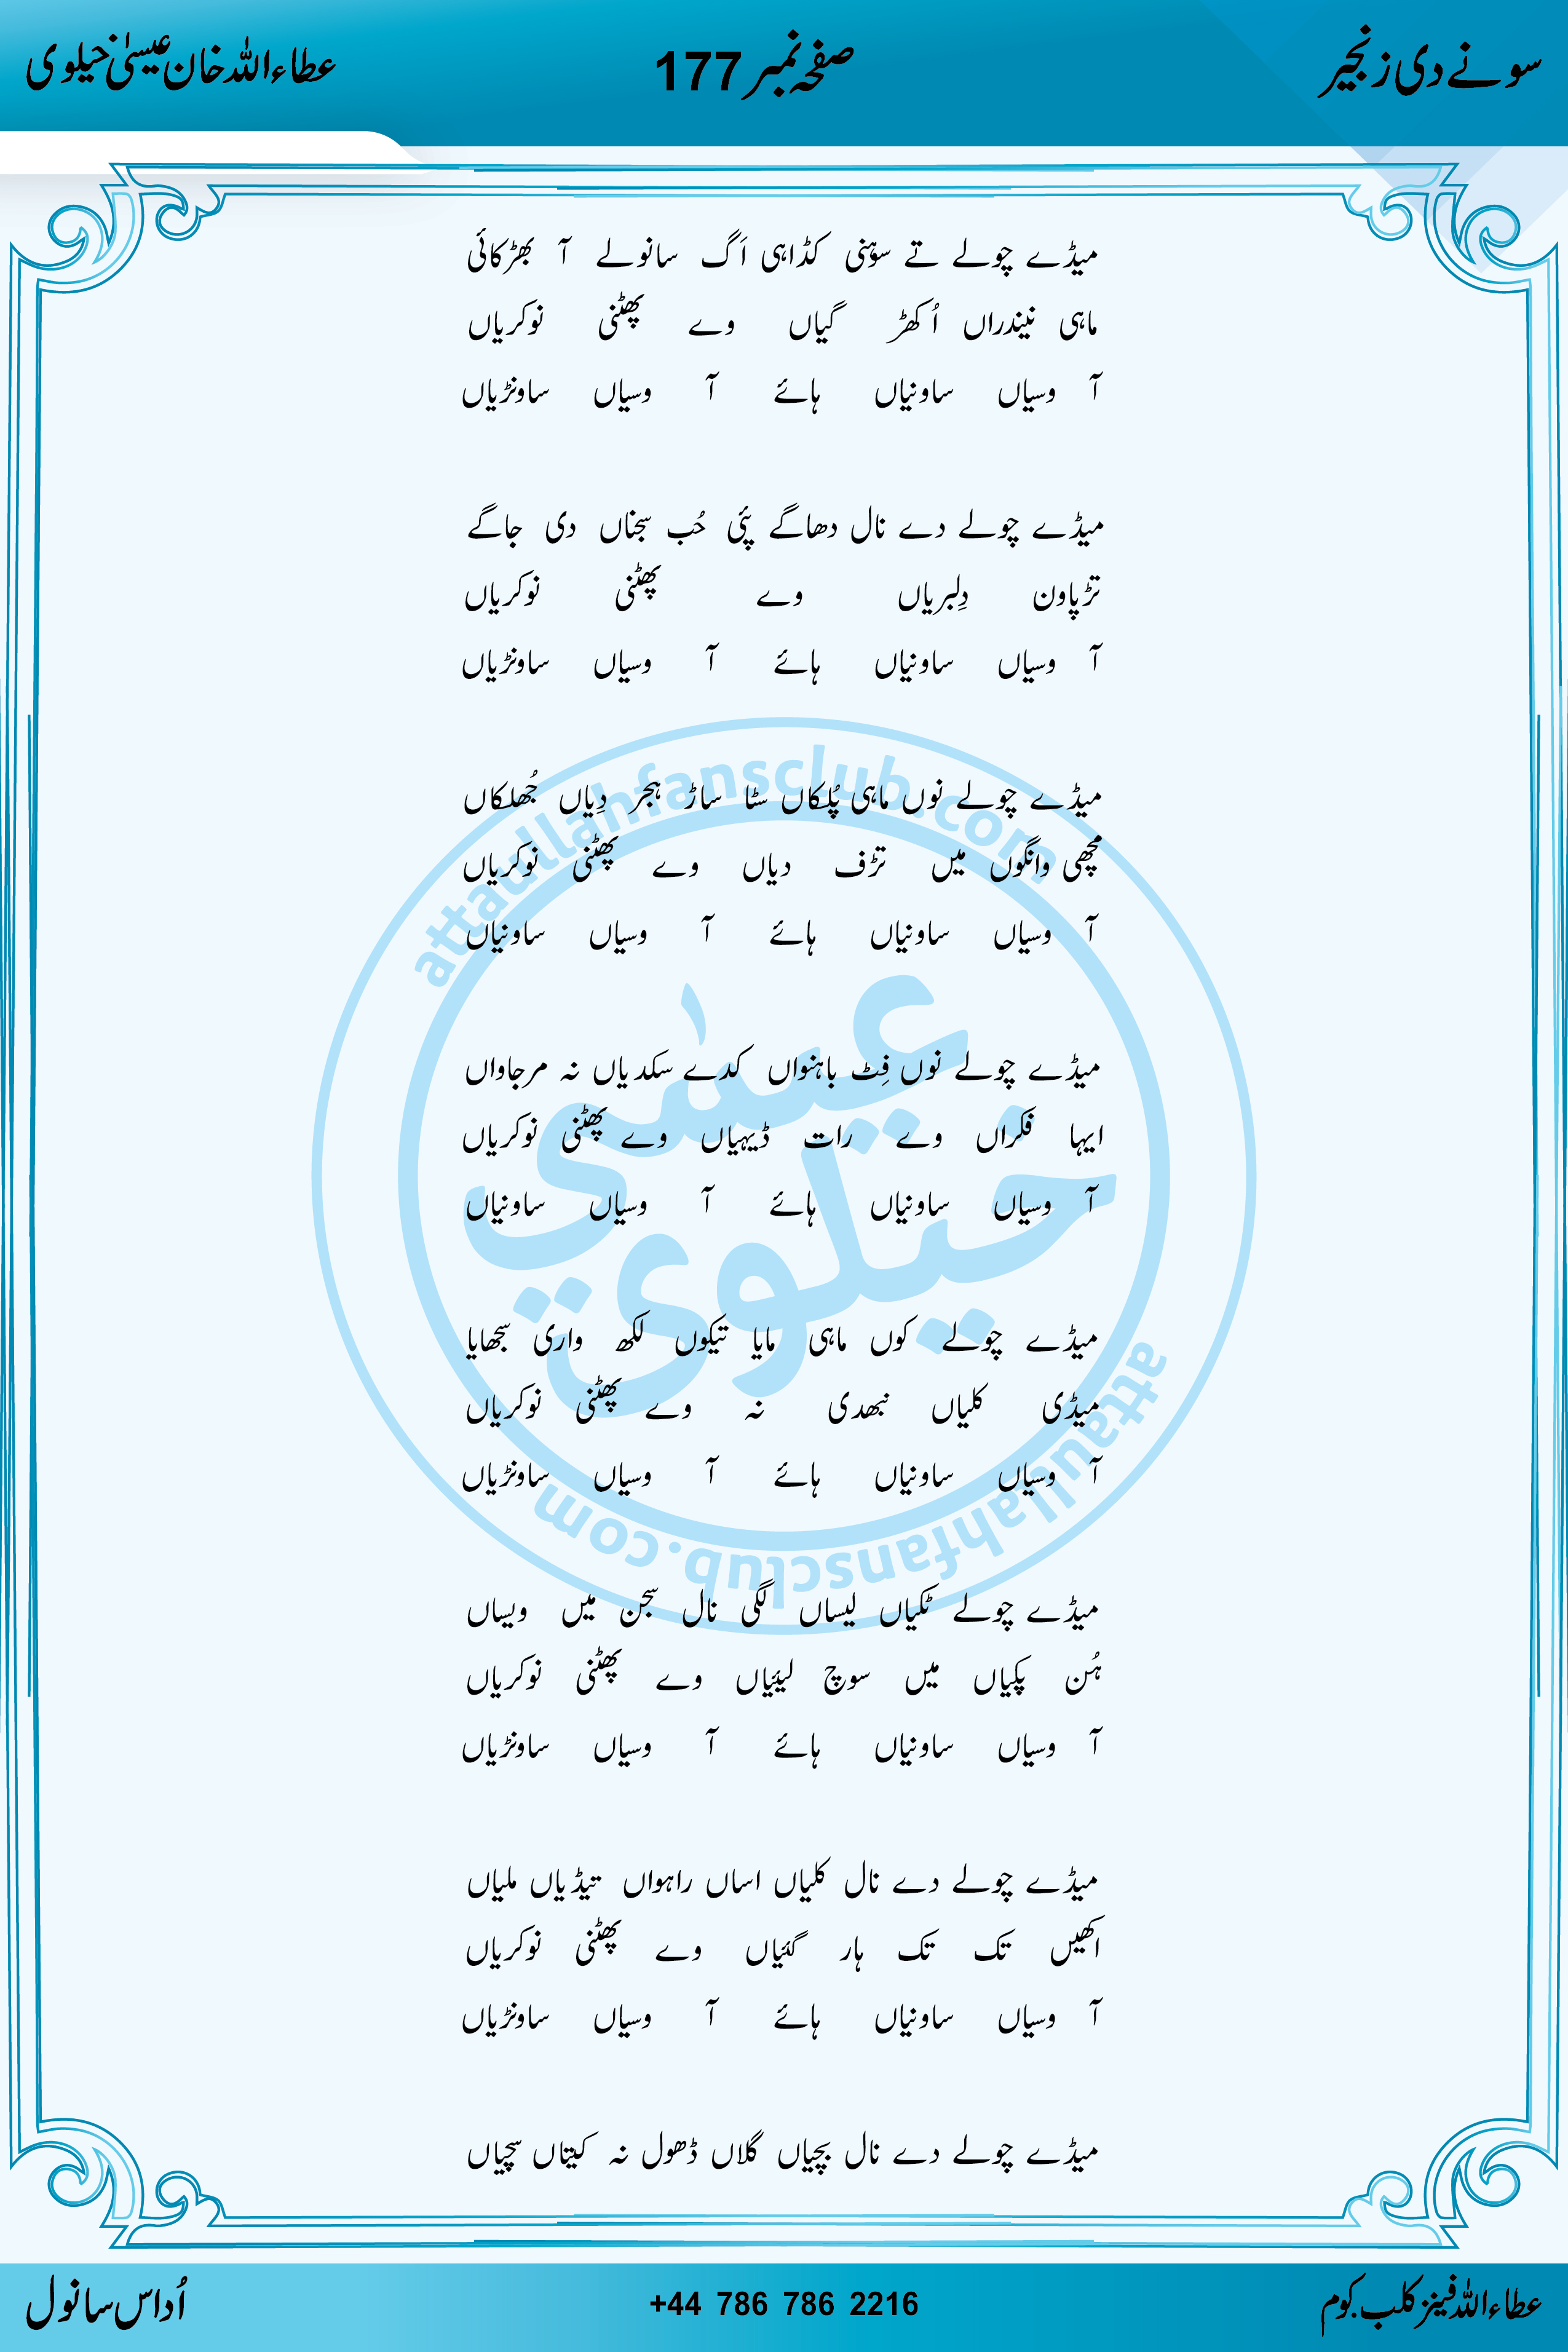 سونے دی زنجیر
صفحہ نمبر 177
عطاءاللہ خان عیسیٰ خیلوی
میڈے چولے تے سوہنی کڈاہی اَگ سانولے آ بھڑکائی
ماہی نیندراں اُکھڑ گیاں وے پھٹنی نوکریاں
آ وسیاں ساونیاں ہائے آ وسیاں ساونڑیاں
میڈے چولے دے نال دھاگے پئی حُب سجناں دی جاگے
تڑپاون دِلبریاں وے پھٹنی نوکریاں
آ وسیاں ساونیاں ہائے آ وسیاں ساونڑیاں
میڈے چولے نوں ماہی پُلکاں سٹا ساڑ ہجر دِیاں جُھلکاں
مچھی وانگوں میں تڑف دیاں وے پھٹنی نوکریاں
آ وسیاں ساونیاں ہائے آ وسیاں ساونیاں
میڈے چولے نوں فِٹ باہنواں کدے سکدیاں نہ مرجاواں
ایہا فکراں وے رات ڈیہیاں وے پھٹنی نوکریاں
آ وسیاں ساونیاں ہائے آ وسیاں ساونیاں
میڈے چولے کوں ماہی مایا تیکوں لکھ واری سجھایا
میڈی کلیاں نبھدی نہ وے پھٹنی نوکریاں
آ وسیاں ساونیاں ہائے آ وسیاں ساونڑیاں
میڈے چولے ٹکیاں لیساں لگی نال سجن میں ویساں
ہُن پکیاں میں سوچ لیئیاں وے پھٹنی نوکریاں
آ وسیاں ساونیاں ہائے آ وسیاں ساونڑیاں
میڈے چولے دے نال کلیاں اساں راہواں تیڈیاں ملیاں
اکھیں تک تک ہار گئیاں وے پھٹنی نوکریاں
آ وسیاں ساونیاں ہائے آ وسیاں ساونڑیاں
میڈے چولے دے نال بچیاں گلاں ڈھول نہ کیتاں سچیاں
attaullahfansclub.com
عیسیٰ
خیلوی
attaullahfansclub.com
عطاءاللہ فینز کلب.کوم
+44 786 786 2216
اُداس سانول